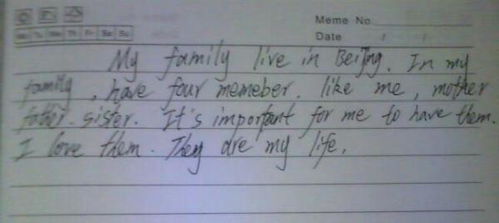 Meme No.
Mo Tu We Th Fr Sa Su
Date / /
My family live in Beijing. In my
family, have four memeber. like me, mother
father. sister. It's important for me to have them.
I love them. They are my life.